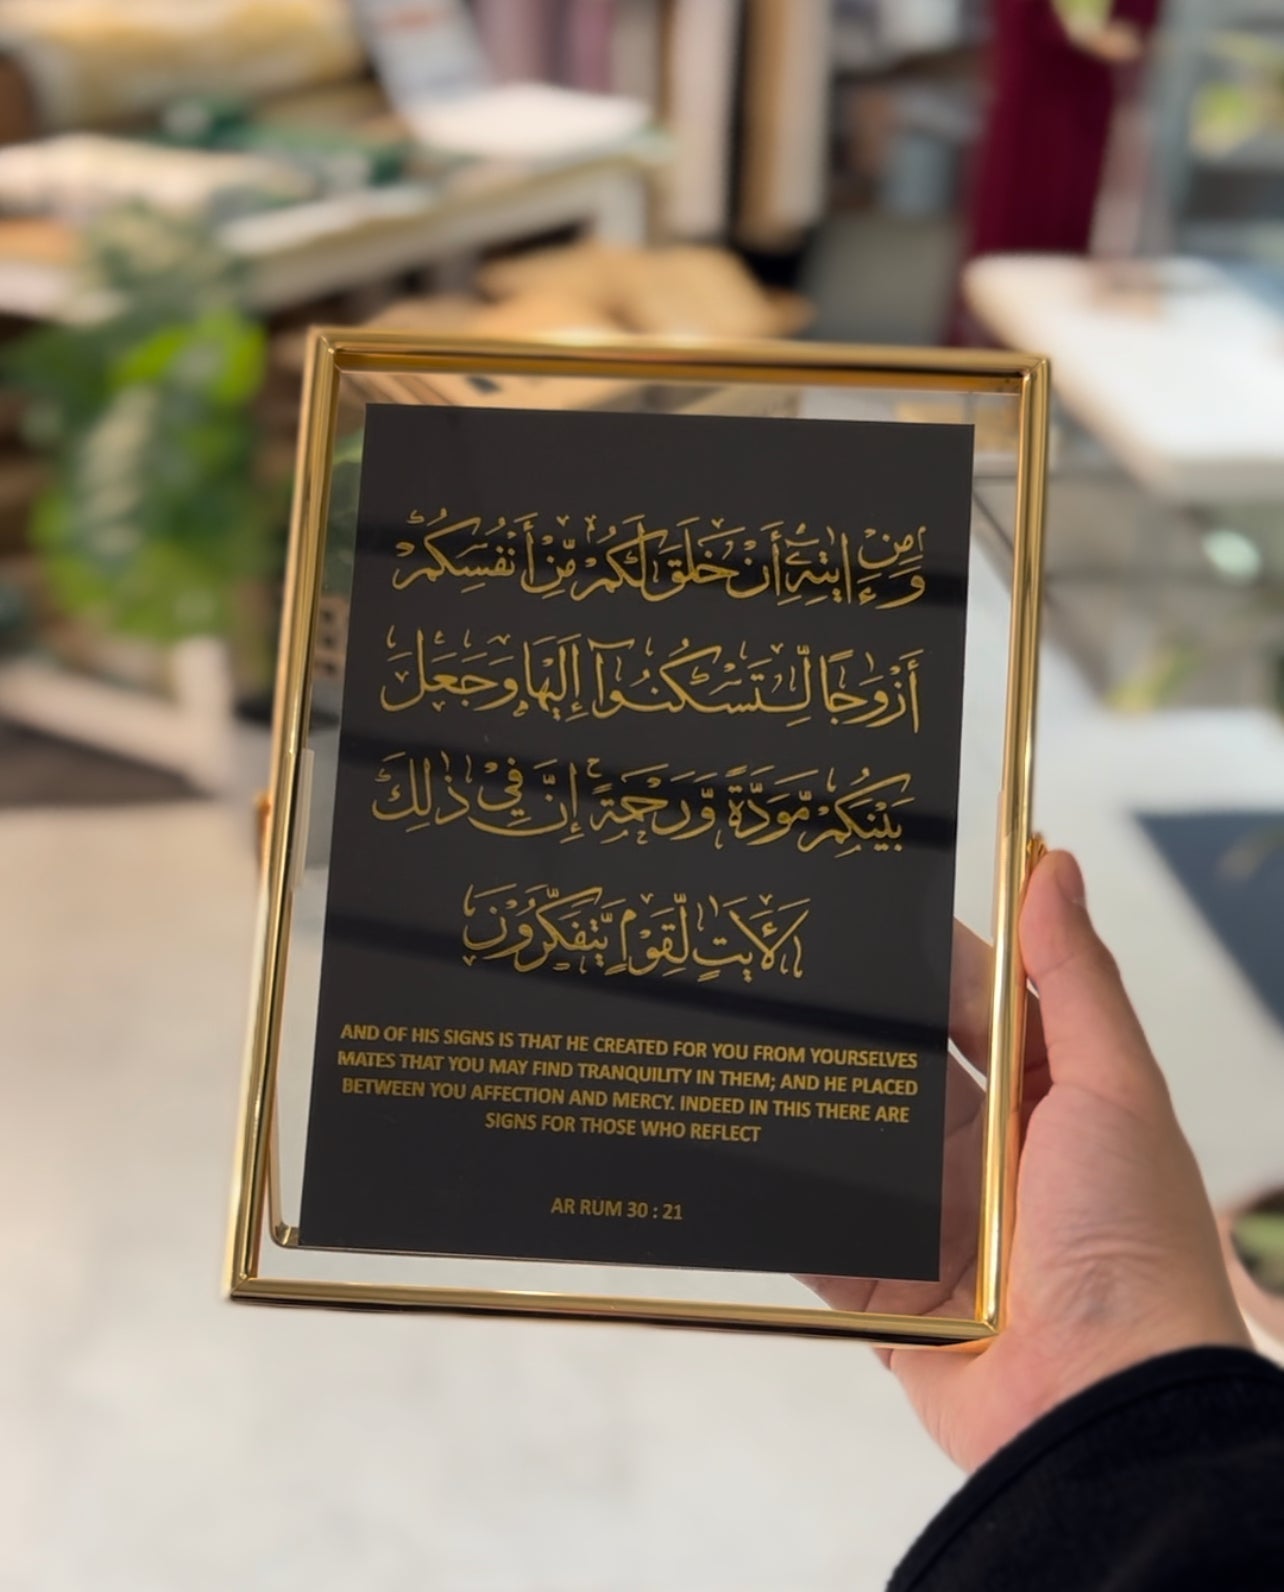 وَمِنْ ءَايَٰتِهِۦٓ أَنْ خَلَقَ لَكُم مِّنْ أَنفُسِكُمْ
أَزْوَٰجًا لِّتَسْكُنُوٓا۟ إِلَيْهَا وَجَعَلَ
بَيْنَكُم مَّوَدَّةً وَرَحْمَةً إِنَّ فِى ذَٰلِكَ
لَءَايَٰتٍ لِّقَوْمٍ يَتَفَكَّرُونَ
AND OF HIS SIGNS IS THAT HE CREATED FOR YOU FROM YOURSELVES
MATES THAT YOU MAY FIND TRANQUILITY IN THEM; AND HE PLACED
BETWEEN YOU AFFECTION AND MERCY. INDEED IN THIS THERE ARE
SIGNS FOR THOSE WHO REFLECT
AR RUM 30 : 21